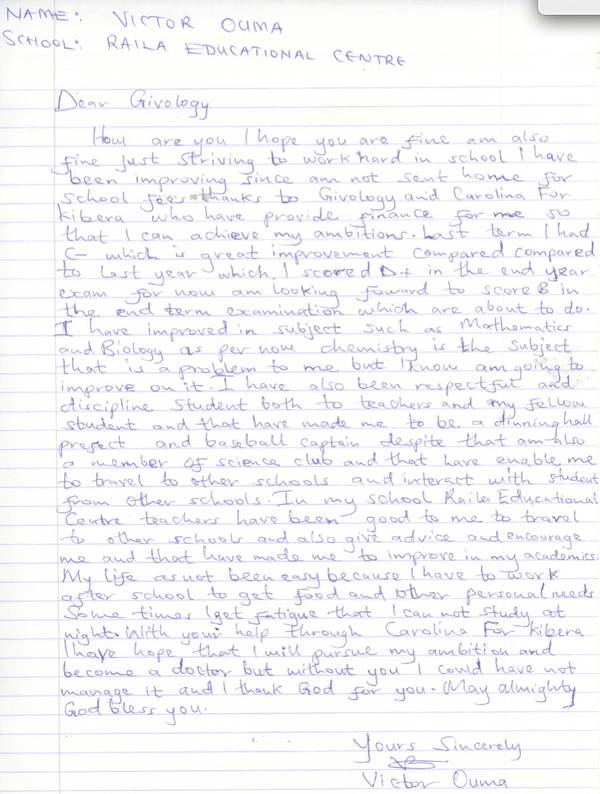 NAME: VICTOR OUMA
SCHOOL: RAILA EDUCATIONAL CENTRE
Dear Givology
How are you I hope you are fine am also
fine just striving to work hard in school I have
been improving since am not sent home for
school fees thanks to Givology and Carolina For
kibera who have provide finance for me so
that I can achieve my ambitions. Last term I had
C- which is great improvement compared compared
to last year which I scored D+ in the end year
exam for now am looking foward to score B in
the end term examination which are about to do.
I have improved in subject such as Mathematics
and Biology as per now chemistry is the subject
that is a problem to me but I know am going to
improve on it. I have also been respectful and
discipline student both to teachers and my fellow
student and that have made me to be a dinning hall
prefect and baseball captain despite that am also
a member of science club and that have enable me
to travel to other schools and interact with student
from other schools. In my school Raila Educational
Centre teachers have been good to me to travel
to other schools and also give advice and encourage
me and that have made me to improve in my academics.
My life as not been easy because I have to work
after school to get food and other personal needs
Some times I get fatigue that I can not study at
night. With your help through Carolina For kibera
I have hope that I will pursue my ambition and
become a doctor but without you I could have not
manage it and I thank God for you. May almighty
God bless you.
Yours Sincerely
Victor Ouma